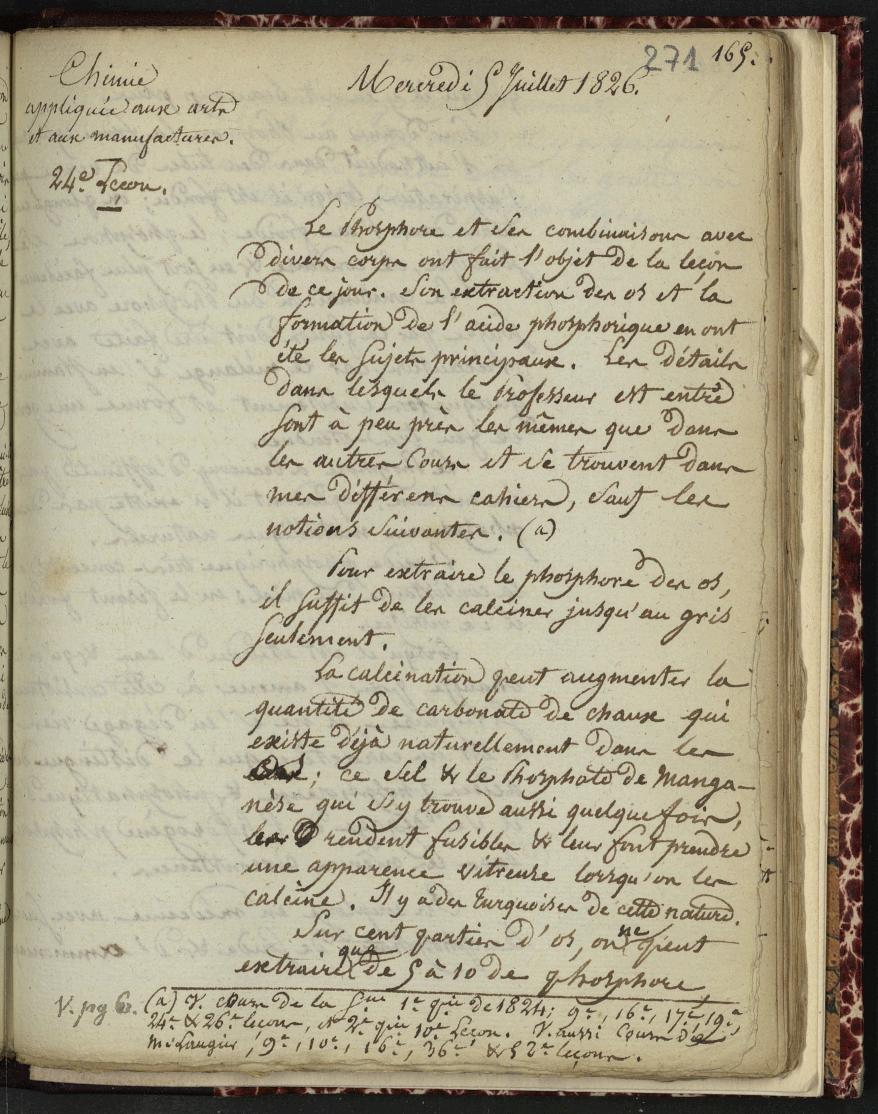 271 165.
Chimie
appliquée aux arts
et aux manufactures.
24e. Leçon.
Mercredi 5 Juillet 1826.
Le Phosphore et ses combinaisons avec
divers corps ont fait l'objet de la leçon
de ce jour. Son extraction des os et la
formation de l'acide phosphorique en ont
été les sujets principaux. Les détails
dans lesquels le Professeur est entré
sont à peu près les mêmes que dans
les autres Cours et se trouvent dans
mes différens cahiers, sauf les
notions suivantes. (a)
Pour extraire le phosphore des os,
il suffit de les calciner jusqu'au gris
seulement.
La calcination peut augmenter la
quantité de carbonate de chaux qui
existe déjà naturellement dans les
; ce sel & le Phosphate de Manga-
nèse qui s'y trouve aussi quelquefois,
les rendent fusibles & leur font prendre
une apparence vitreuse lorsqu'on les
calcine. Il y a des turquoises de cette nature.
Sur cent parties d'os, on ne peut
extraire que de 5 à 10 de phosphore
V. pg 6. (a) V. cours de la 1e. de 1824; 9e., 16e., 17e., 19e.,
24e. & 26e. leçons, et 2e. 10e. Leçon. V. aussi Cours de
Mr. Laugier, 9e., 10e., 16e., 36e. & 52e. leçons.